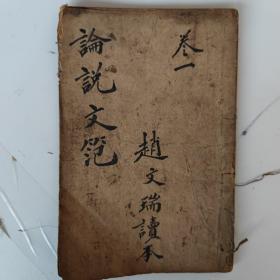 卷一
趙文瑞讀本
論説文範